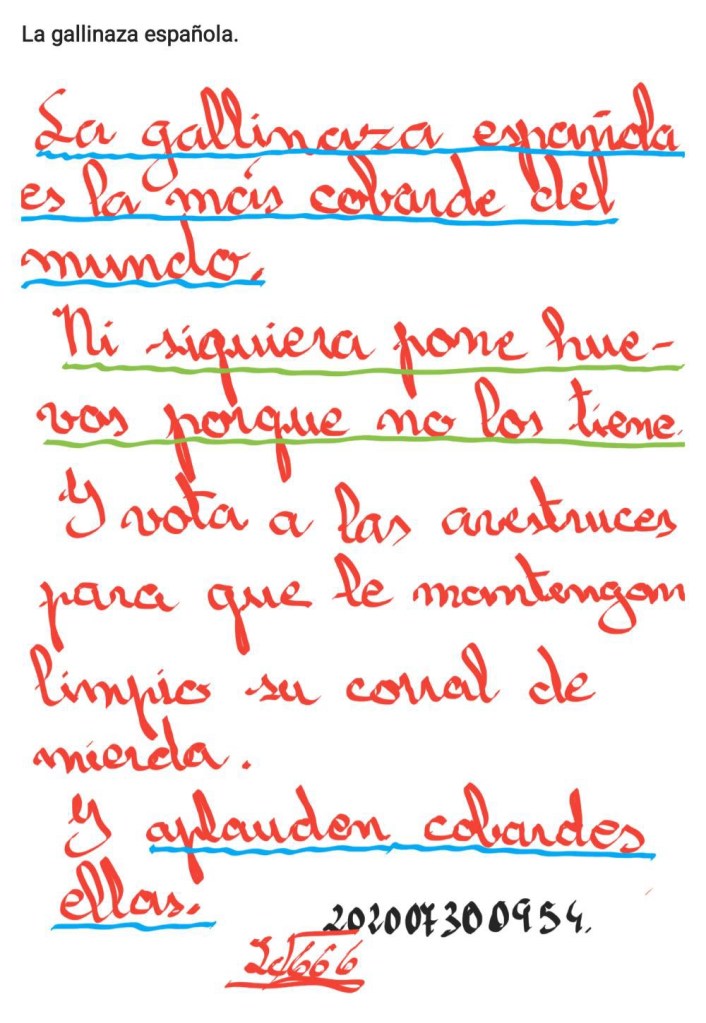 La gallinaza española.
La gallinaza española
es la más cobarde del
mundo.
Ni siquiera pone hue-
vos porque no los tiene.
Y vota a las avestruces
para que le mantengan
limpio su corral de
mierda.
Y aplauden cobardes
ellas.
202007300954.
666